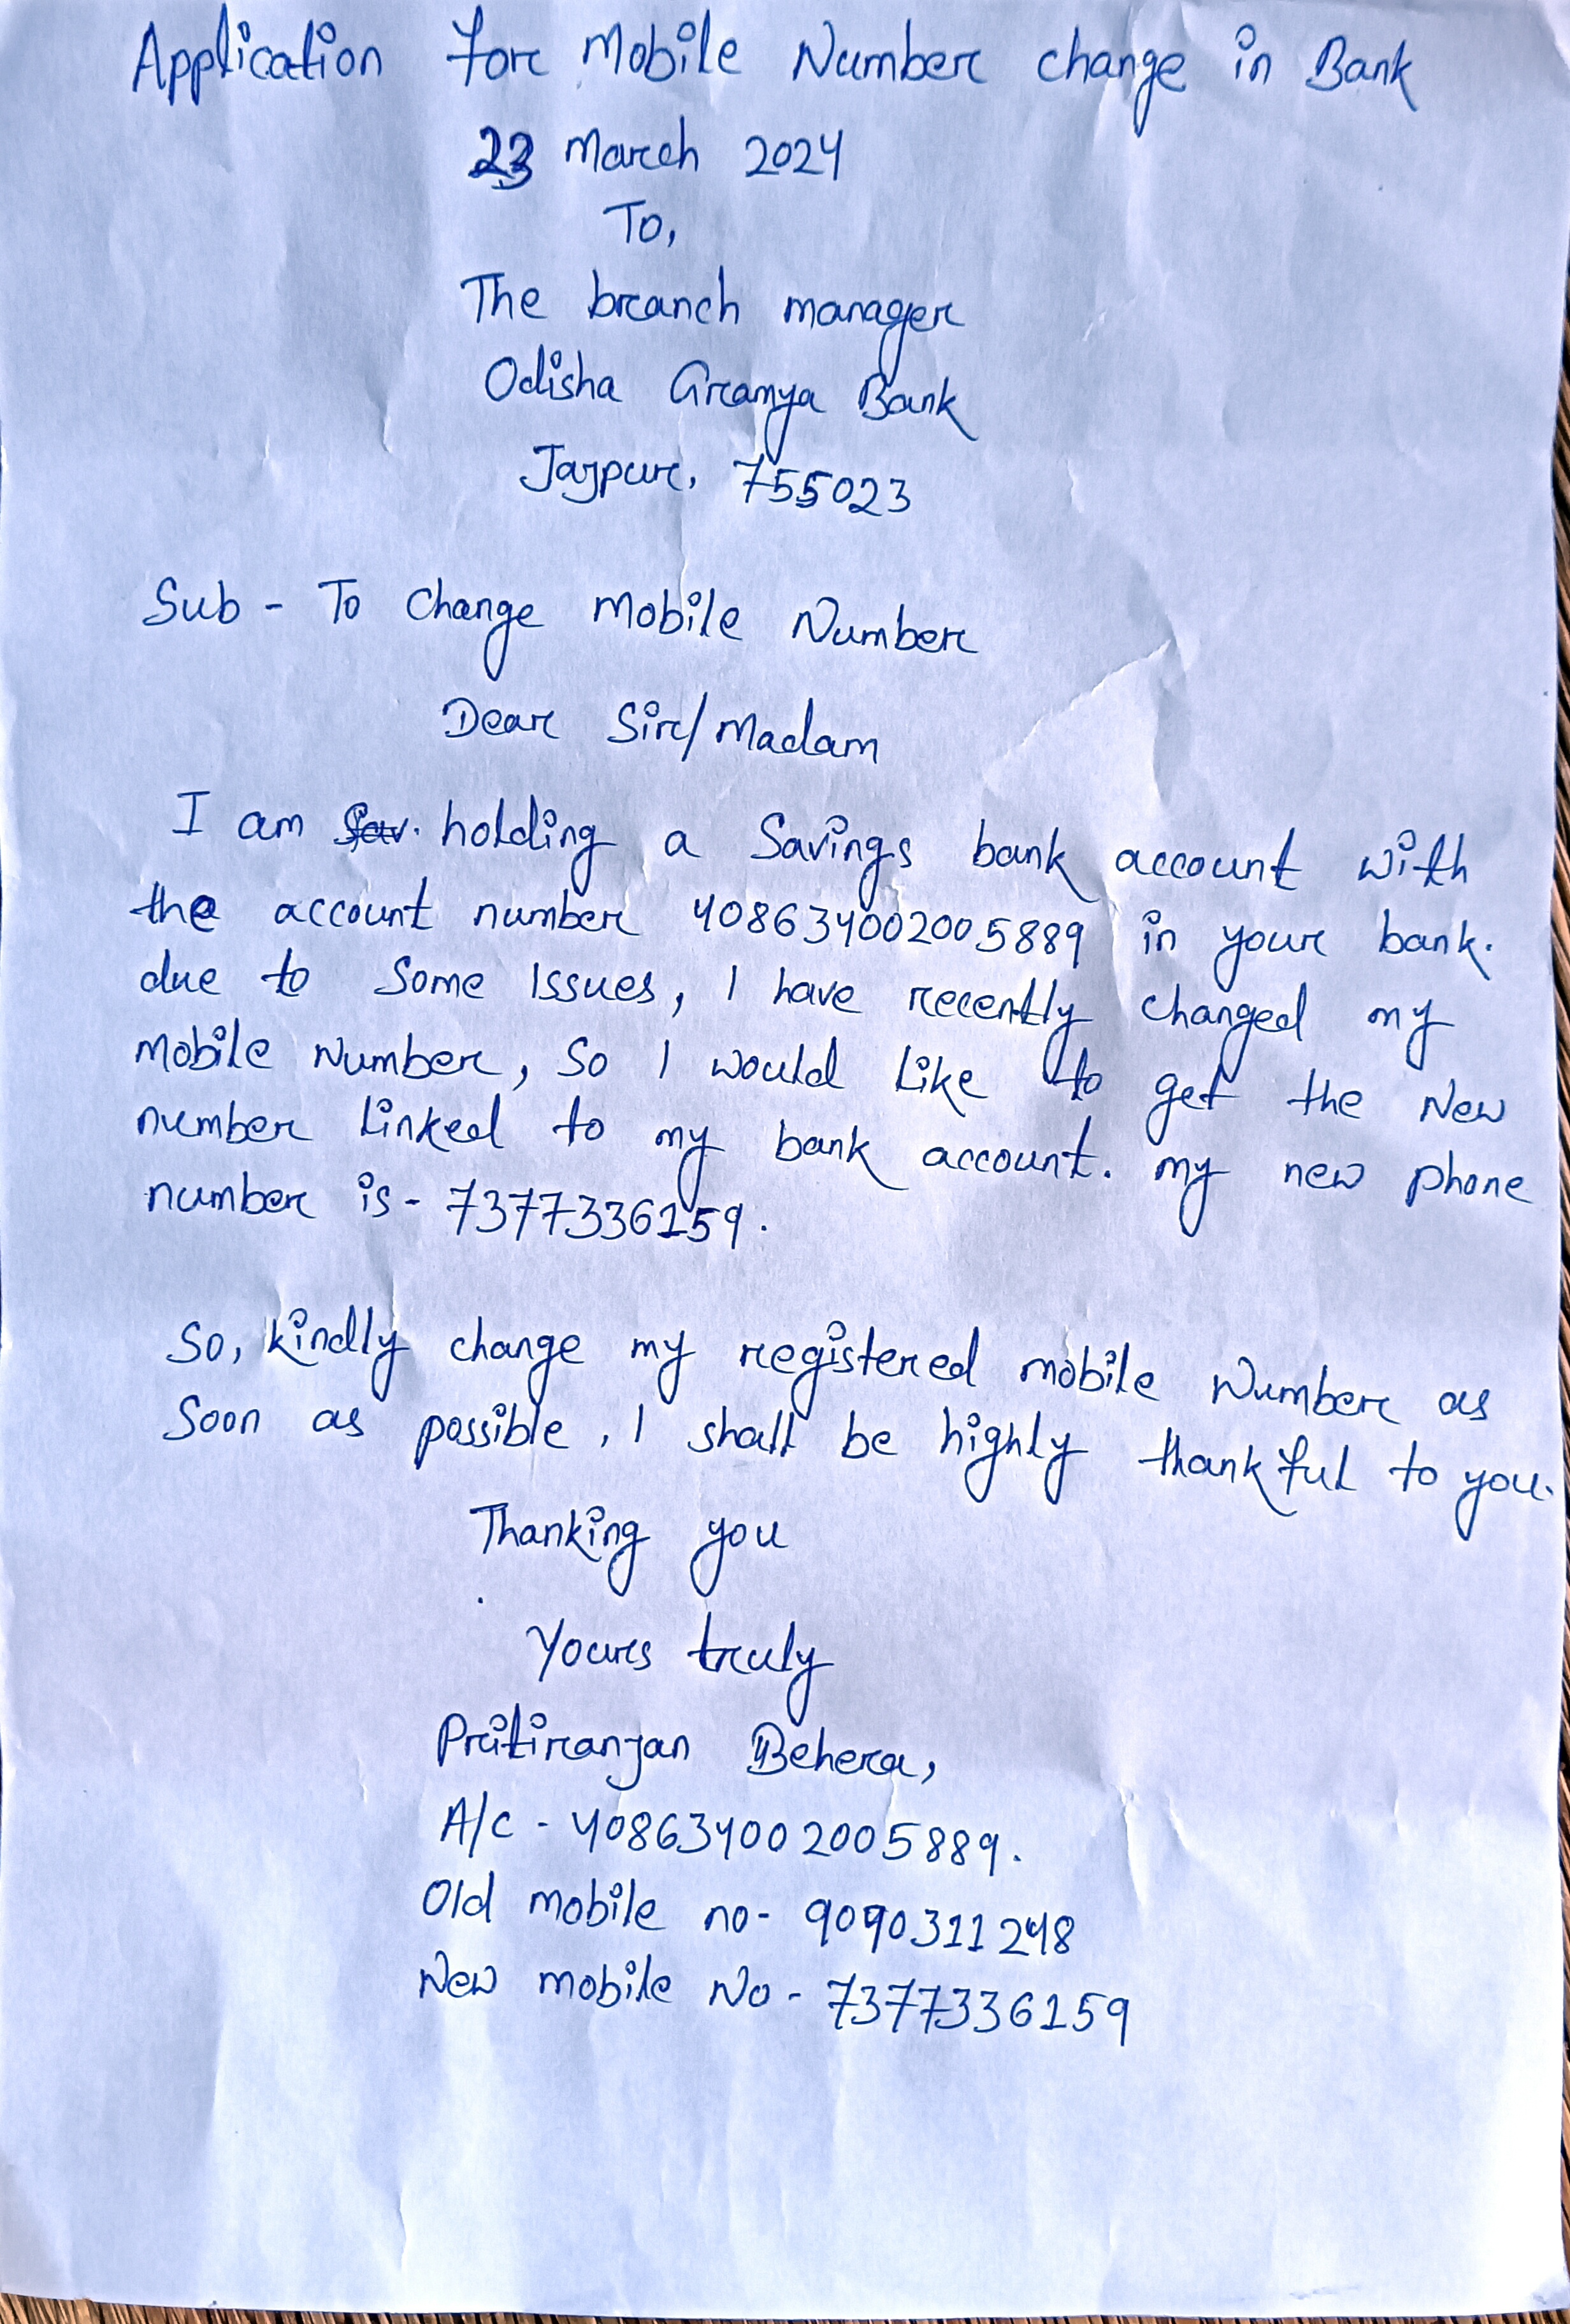 Application for Mobile Number change in Bank
23 March 2024
To,
The branch manager
Odisha Gramya Bank
Jajpur, 755023
Sub - To Change Mobile Number
Dear Sir/Madam
I am holding a Savings bank account with
the account number 408634002005889 in your bank.
due to Some Issues, I have recently changed my
Mobile Number, So I would like to get the New
number linked to my bank account. my new phone
number is - 7377336159.
So, kindly change my registered mobile Number as
Soon as possible, I shall be highly thankful to you.
Thanking you
Yours truly
Pritiranjan Behera,
A/C - 408634002005889.
Old mobile no- 9090311248
New mobile No - 7377336159